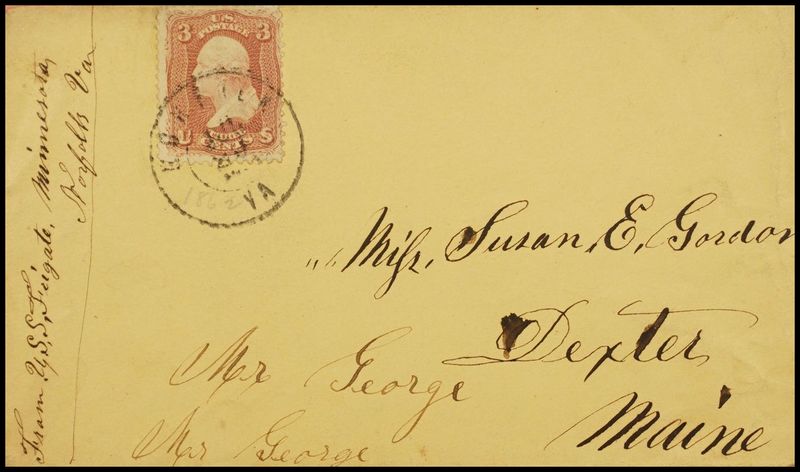 From U.S.S. Frigate, Minnesota,
Norfolk Va
3 U.S. 3
POSTAGE
U THREE S
CENTS
NORFOLK
VA
1862
Miss, Susan, E, Gordon
Dexter
Maine
Mr George
Mr George